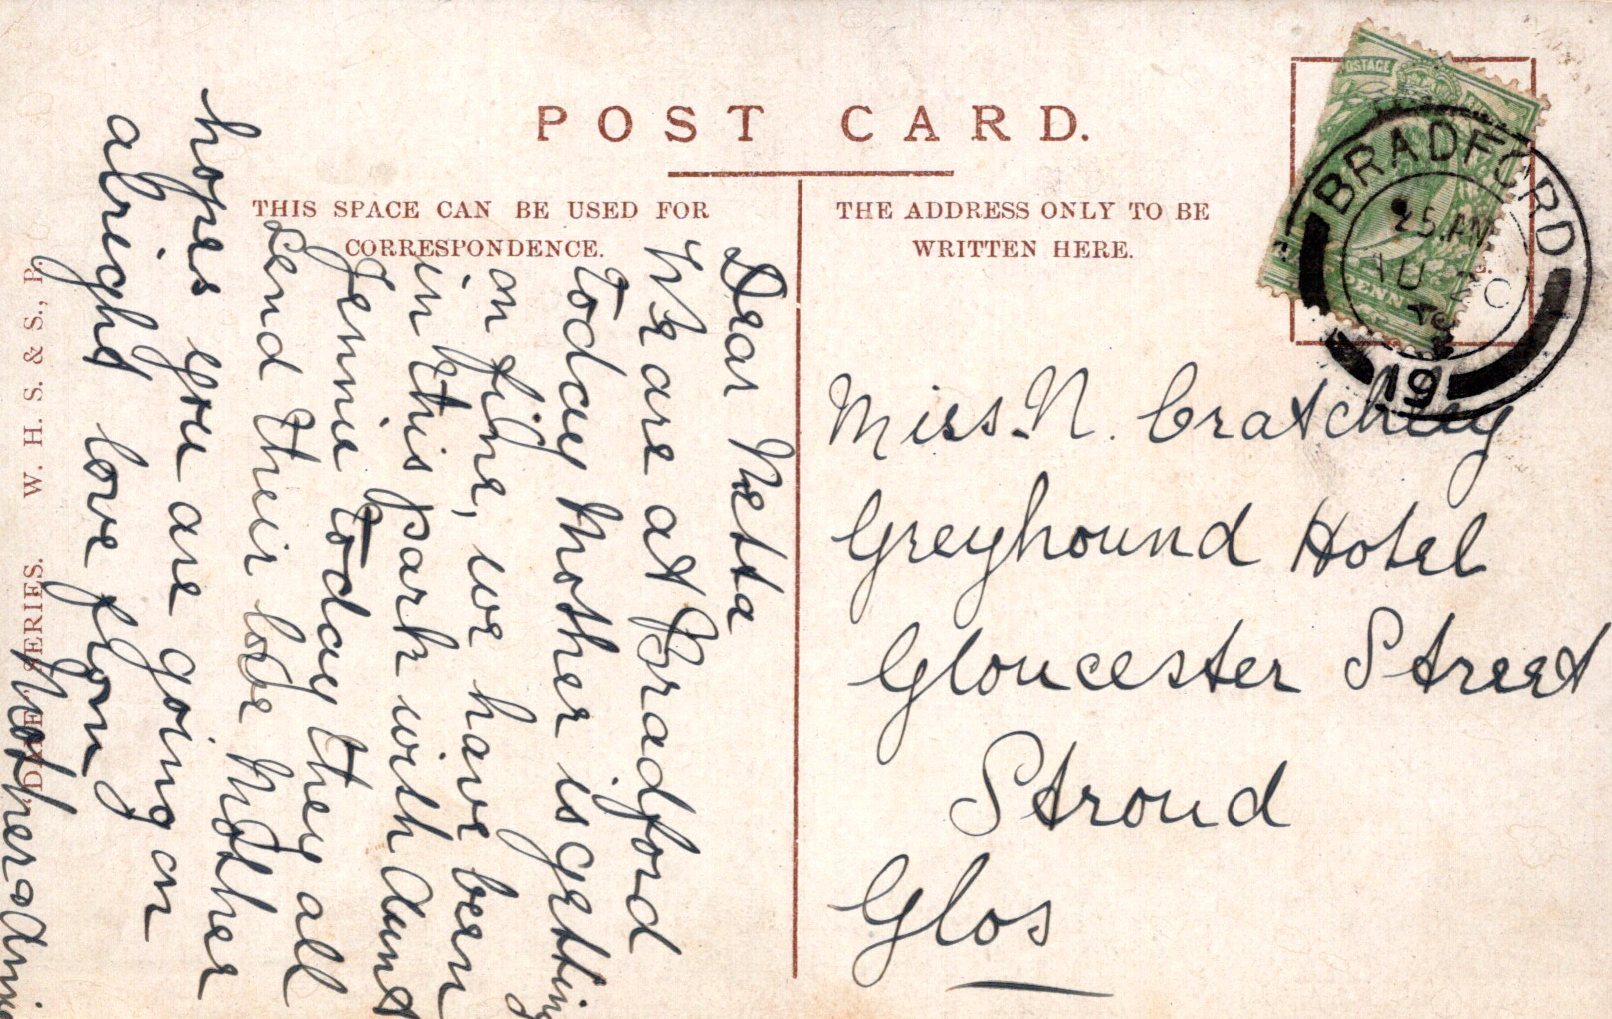 POST CARD.
THIS SPACE CAN BE USED FOR
CORRESPONDENCE.
THE ADDRESS ONLY TO BE
WRITTEN HERE.
POSTAGE
BRADFORD
AU 20
19
Dear Netta
We are at Bradford
today Mother is getting
on fine, we have been
in this park with Aunt
Jennie today they all
send their love Mother
hopes you are going on
alright love from
Mother & Annie
Miss. N. Cratchley
Greyhound Hotel
Gloucester Street
Stroud
Glos
SERIES. W. H. S. & S.,